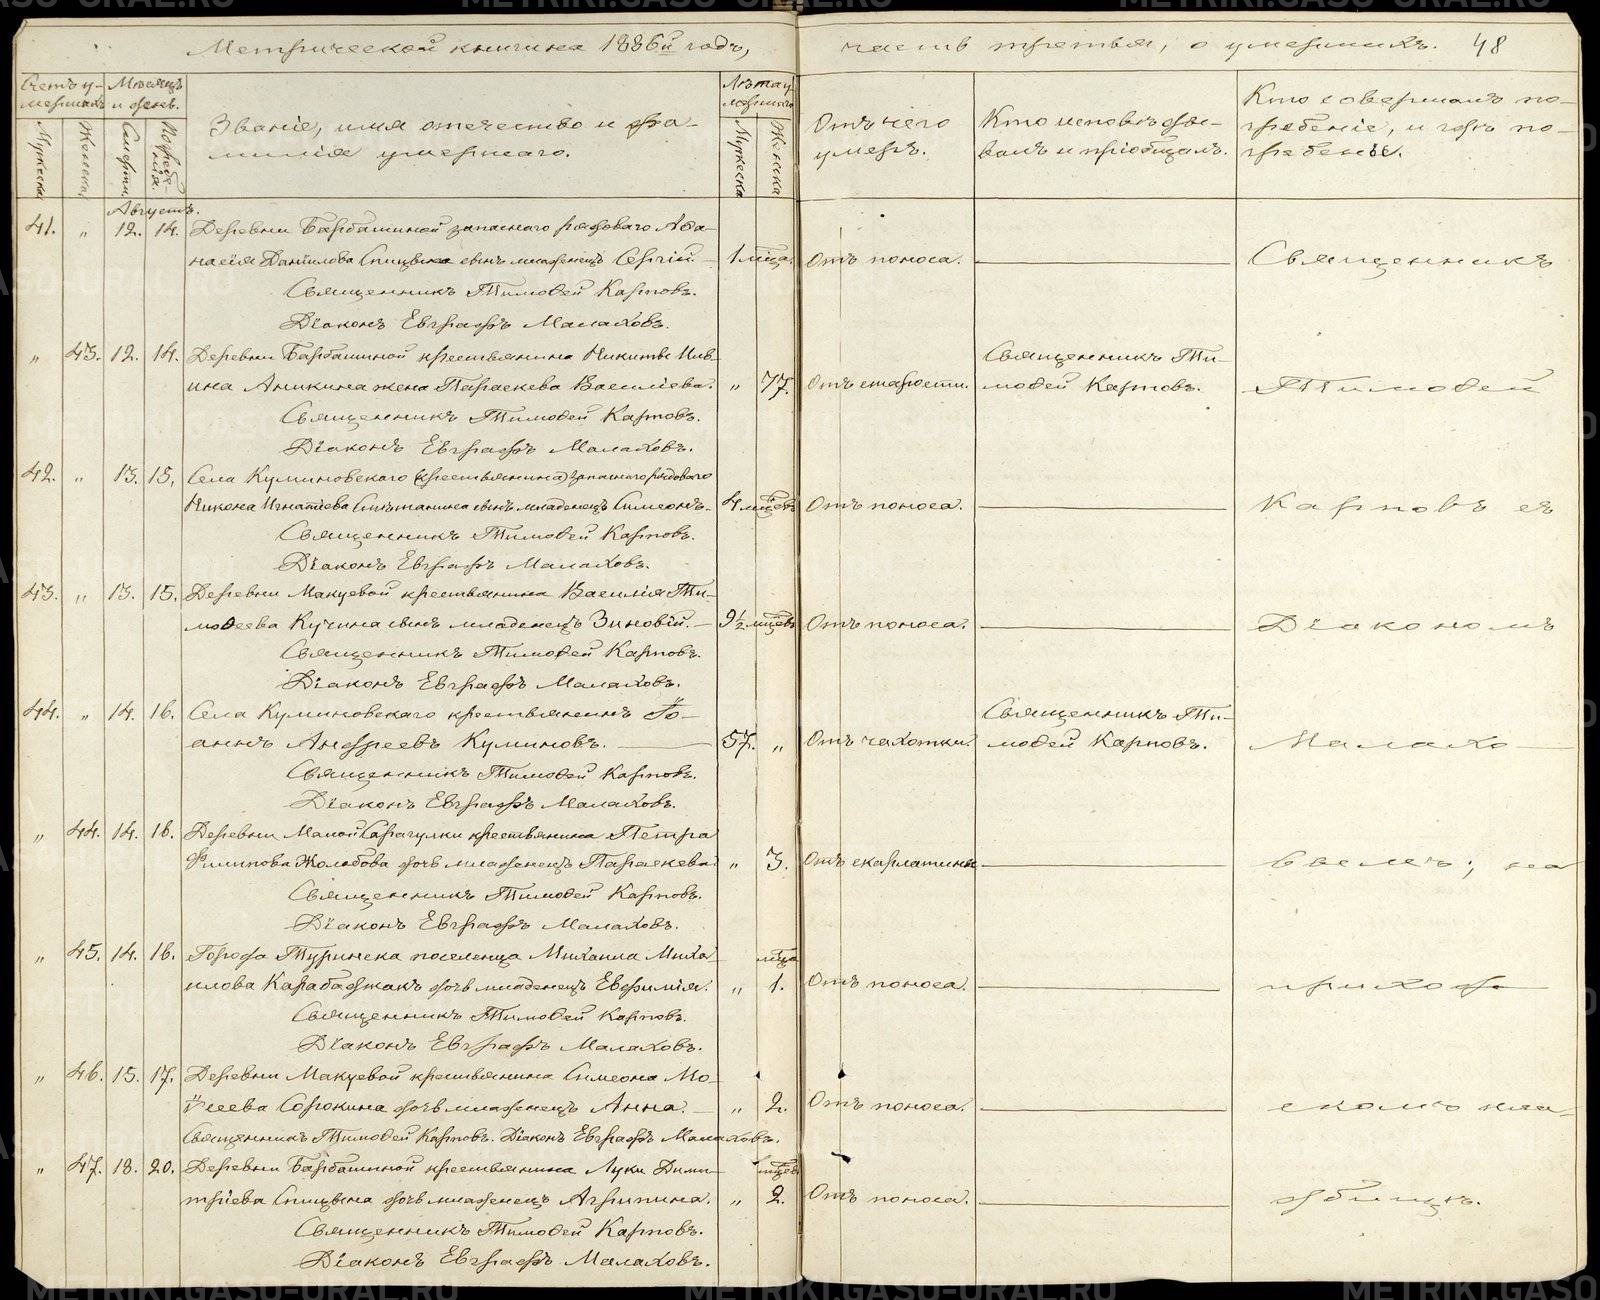 Метрической книги на 1886й годъ, часть третья, о умершихъ. 48
Счетъ у-
мершихъ
Мѣсяцъ
и день.
Мужеска.
Женска.
Смерти.
Погребе-
нія.
Званіе, имя отечество и фа-
милія умершаго.
Лѣта у-
мершаго
Мужеска
Женска
Отъ чего
умеръ.
Кто исповѣды-
валъ и пріобщалъ.
Кто совершалъ по-
гребеніе, и гдѣ по-
гребены.
Августъ.
41. „ 12. 14. Деревни Барбашиной запаснаго рядоваго Аѳа-
насія Данилова Спицына сынъ младенецъ Сергій. 1 мѣца. Отъ поноса. Священникъ
Священникъ Тимоѳей Карповъ.
Діаконъ Евграфъ Малаховъ.
„ 43. 12. 14. Деревни Барбашиной крестьянина Никиты Ив- Священникъ Ти-
ина Аникина жена Параскева Василіева. „ 77. Отъ старости. моѳей Карповъ. Тимоѳей
Священникъ Тимоѳей Карповъ.
Діаконъ Евграфъ Малаховъ.
42. „ 13. 15. Села Куминовскаго (крестьянина) запаснаго рядоваго
Никона Игнатіева Смѣтанина сынъ младенецъ Симеонъ. 4 мѣцевъ Отъ поноса. Карповъ съ
Священникъ Тимоѳей Карповъ.
Діаконъ Евграфъ Малаховъ.
43. „ 13. 15. Деревни Макуевой крестьянина Василія Ти-
моѳеева Кучина сынъ младенецъ Зиновій. 9½ мѣцевъ Отъ поноса. Діакономъ
Священникъ Тимоѳей Карповъ.
Діаконъ Евграфъ Малаховъ.
44. „ 14. 16. Села Куминовскаго крестьянинъ Іо- Священникъ Ти-
аннъ Андреевъ Куминовъ. 57. „ Отъ чахотки. моѳей Карповъ. Малахо
Священникъ Тимоѳей Карповъ.
Діаконъ Евграфъ Малаховъ.
„ 44. 14. 16. Деревни Малой Сарагулки крестьянина Петра
Филипова Жолобова дочь младенецъ Параскева. „ 3. Отъ скарлатины вымъ; на
Священникъ Тимоѳей Карповъ.
Діаконъ Евграфъ Малаховъ.
„ 45. 14. 16. Города Туринска поселенца Михаила Миха- мѣца
илова Карабаджакъ дочь младенецъ Евфимія. „ 1. Отъ поноса. приход
Священникъ Тимоѳей Карповъ.
Діаконъ Евграфъ Малаховъ.
„ 46. 15. 17. Деревни Макуевой крестьянина Симеона Мо-
ѵсеева Сорокина дочь младенецъ Анна. „ 2. Отъ поноса. скомъ кла-
Священникъ Тимоѳей Карповъ. Діаконъ Евграфъ Малаховъ.
„ 47. 18. 20. Деревни Барбашиной крестьянина Луки Дими- мѣцев
тріева Спицына дочь младенецъ Агрипина. „ 2. Отъ поноса. дбищѣ.
Священникъ Тимоѳей Карповъ.
Діаконъ Евграфъ Малаховъ.
METRIKI.GASO-URAL.RU